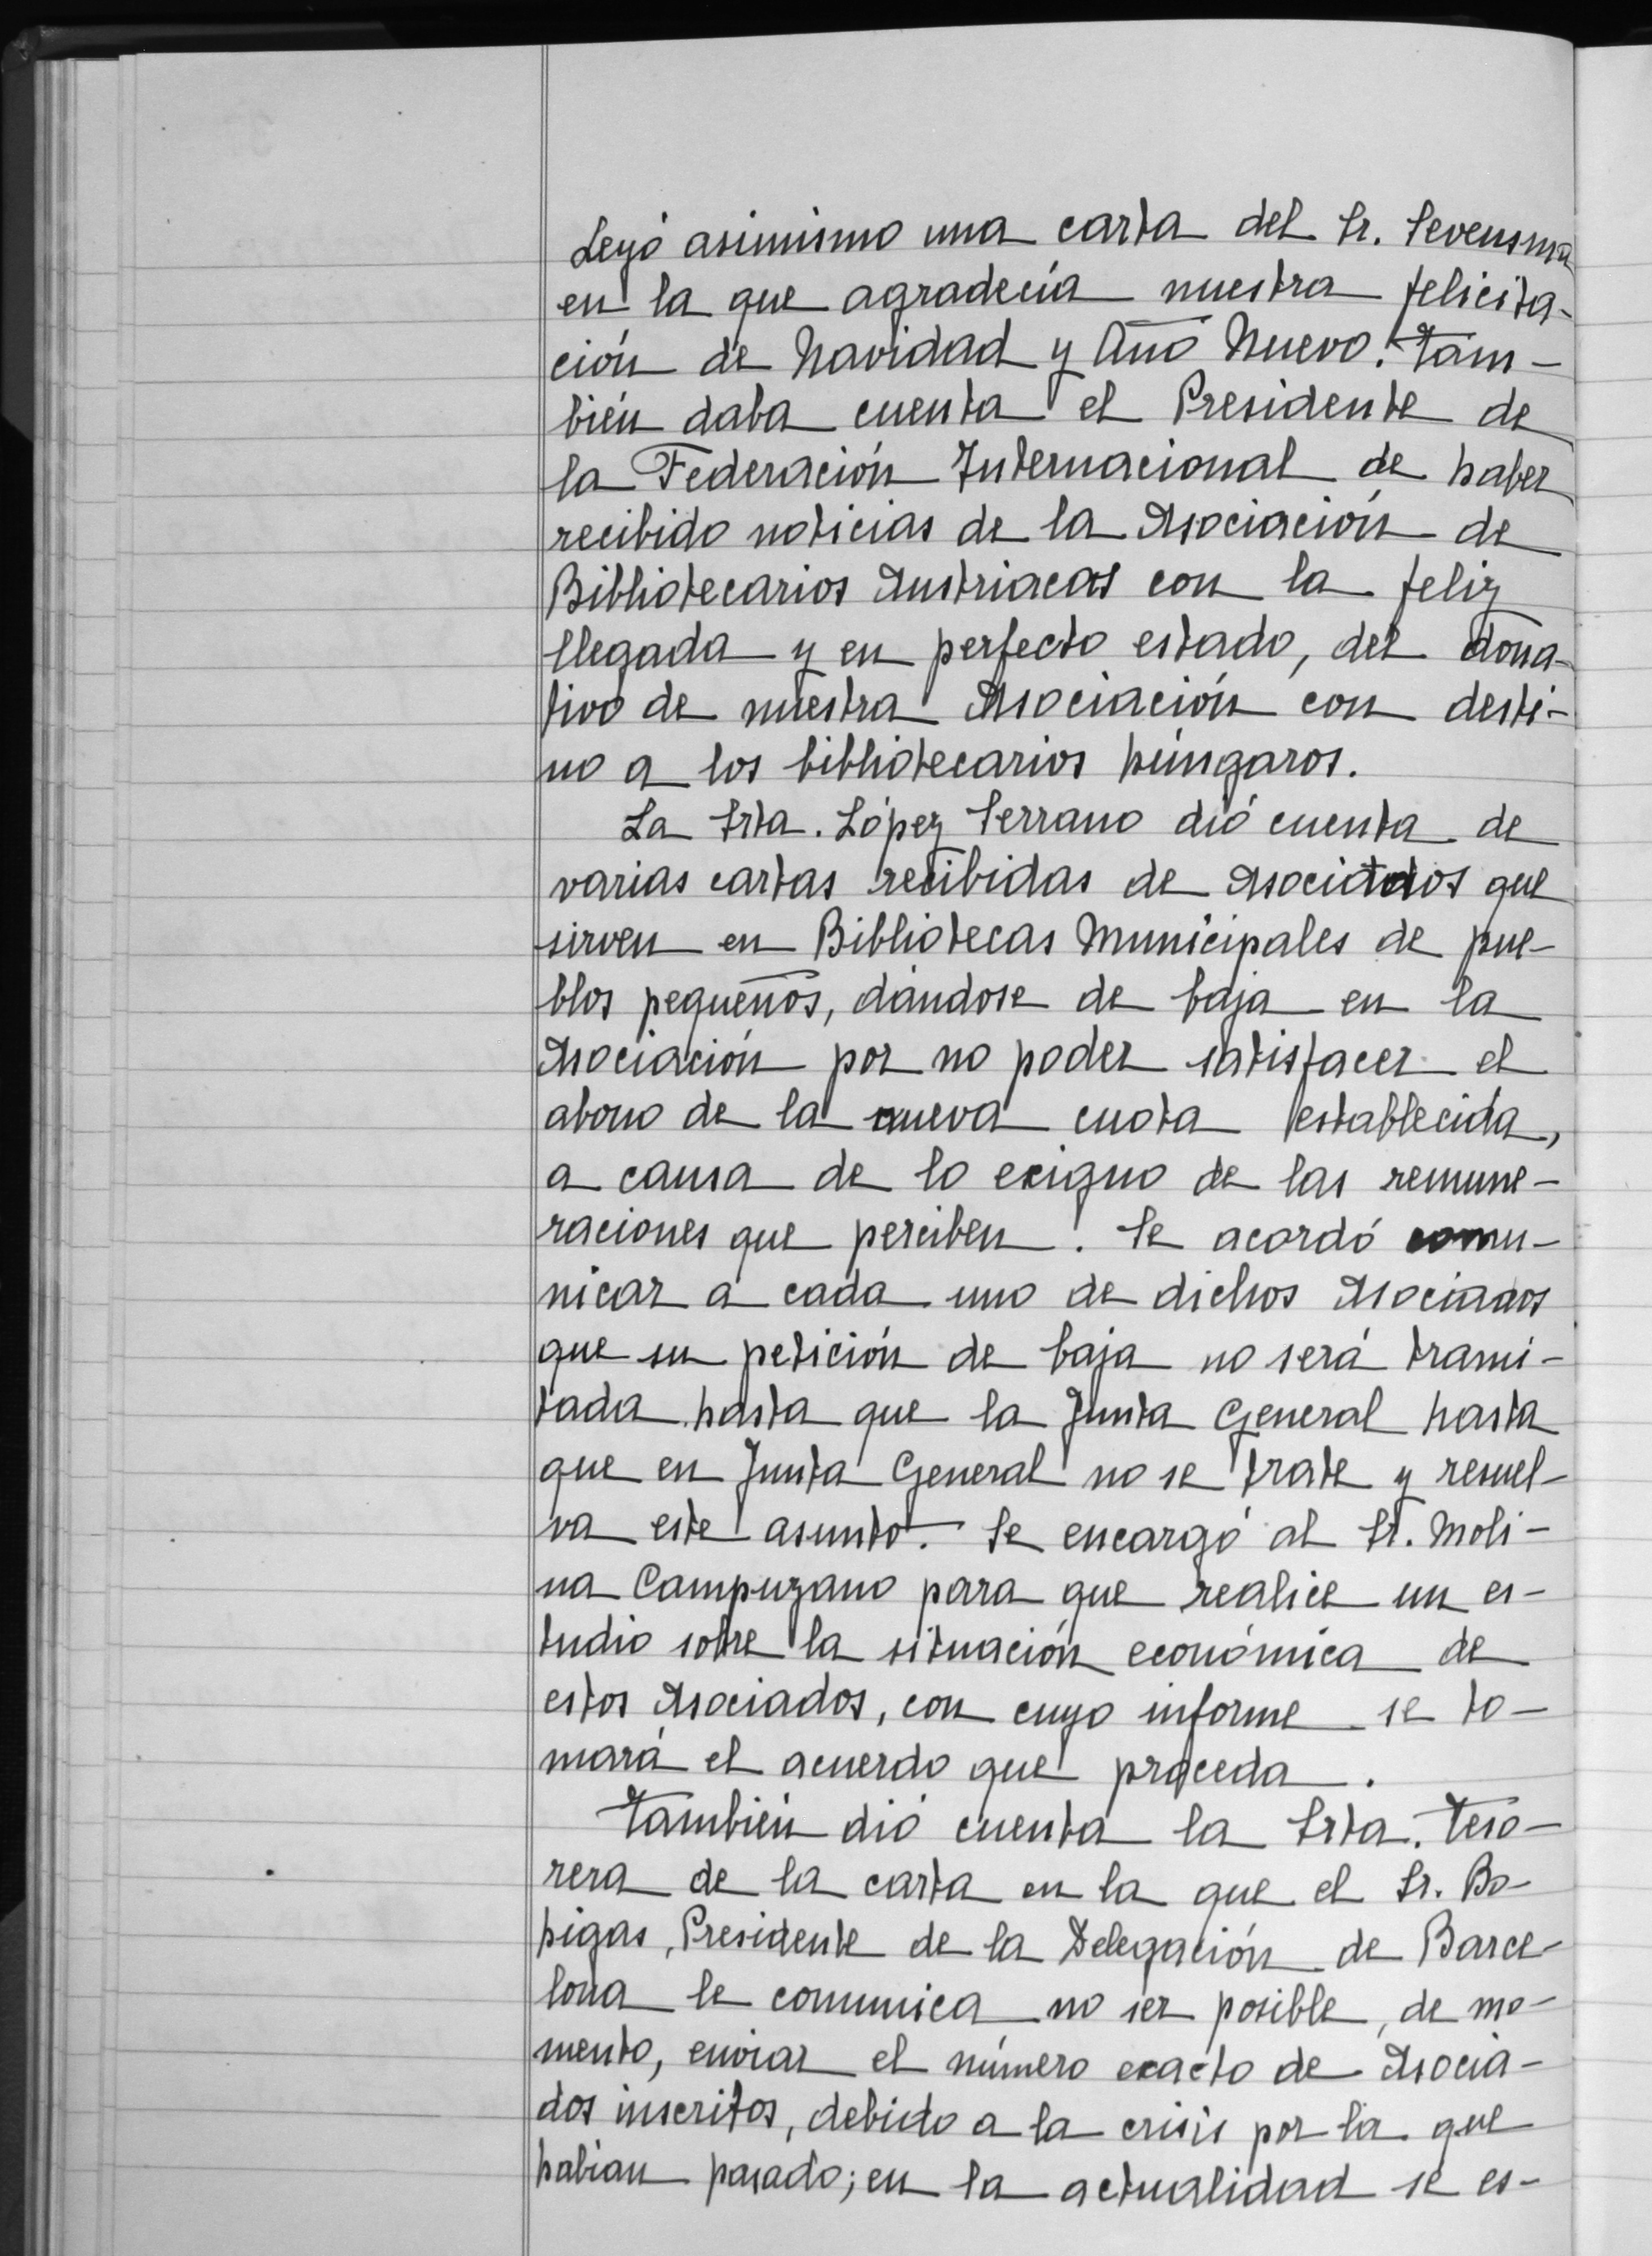 Leyó asimismo una carta del Sr. Sevensma
en la que agradecía nuestra felicita-
ción de Navidad y Año Nuevo. Tam-
bién daba cuenta el Presidente de
la Federación Internacional de haber
recibido noticias de la Asociación de
Bibliotecarios Austriacos con la feliz
llegada y en perfecto estado, del dona-
tivo de nuestra Asociación con desti-
no a los bibliotecarios húngaros.
La Srta. López Serrano dió cuenta de
varias cartas recibidas de Asociados que
sirven en Bibliotecas Municipales de pue-
blos pequeños, dándose de baja en la
Asociación por no poder satisfacer el
abono de la nueva cuota establecida,
a causa de lo exiguo de las remune-
raciones que perciben. Se acordó comu-
nicar a cada uno de dichos Asociados
que su petición de baja no será trami-
tada hasta que la Junta General hasta
que en Junta General no se trate y resuel-
va este asunto. Se encargó al Sr. Moli-
na Campuzano para que realice un es-
tudio sobre la situación económica de
estos Asociados, con cuyo informe se to-
mará el acuerdo que proceda.
También dió cuenta la Srta. Teso-
rera de la carta en la que el Sr. Bo-
higas, Presidente de la Delegación de Barce-
lona le comunica no ser posible, de mo-
mento, enviar el número exacto de Asocia-
dos inscritos, debido a la crisis por la que
habían pasado; en la actualidad se es-